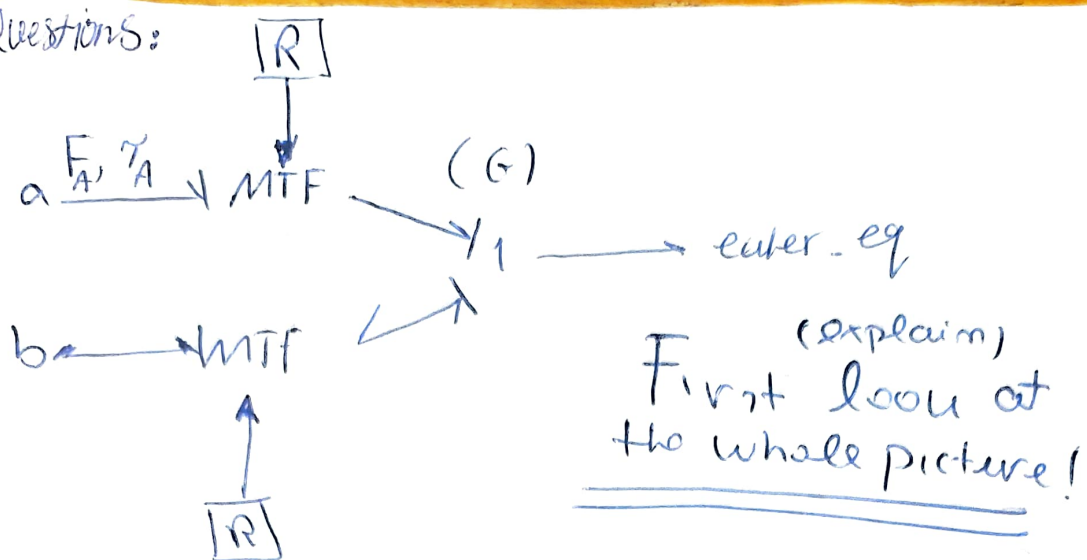 Questions:
R
F_A, τ_A
a MTF
(G)
1 euler_eq
b MTf
R
(explain)
First look at
the whole picture!